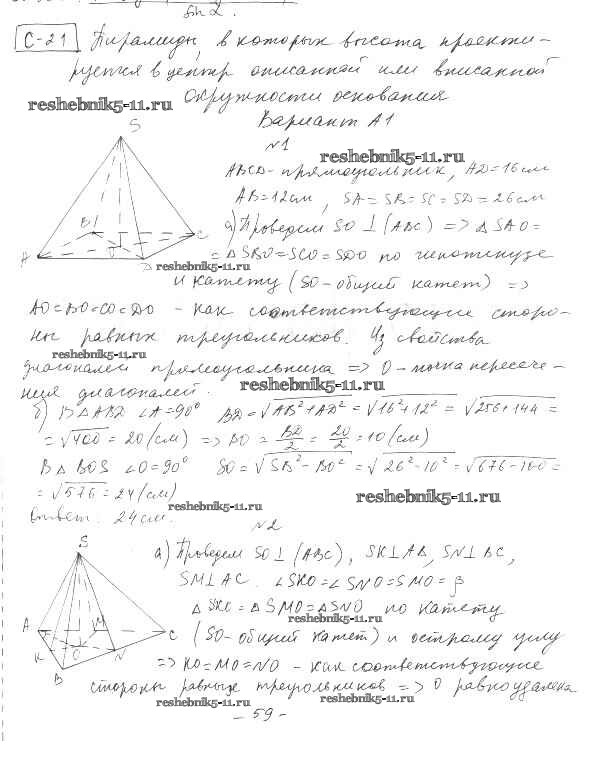 sin 2.
С-21 Пирамиды, в которых высота проекти-
руется в центр описанной или вписанной
окружности основания
reshebnik5-11.ru
Вариант А1
S
№1
reshebnik5-11.ru
ABCD - прямоугольник, AD = 16 см
AB = 12 см, SA = SB = SC = SD = 26 см
а) Проведем SO ⊥ (ABC) => △ SAO =
B C
A O D
reshebnik5-11.ru
= △ SBO = SCO = SDO по гипотенузе
и катету (SO - общий катет) =>
AO = BO = CO = DO - как соответствующие сторо-
ны равных треугольников. Из свойства
reshebnik5-11.ru
диагоналей прямоугольника => O - точка пересече-
ния диагоналей.
reshebnik5-11.ru
б) В △ ABD ∠A = 90° BD = √AB² + AD² = √16² + 12² = √256 + 144 =
= √400 = 20 (см) => BO = BD/2 = 20/2 = 10 (см)
В △ BOS ∠O = 90° SO = √SB² - BO² = √26² - 10² = √676 - 100 =
= √576 = 24 (см)
reshebnik5-11.ru
reshebnik5-11.ru
Ответ: 24 см.
№2
S
а) Проведем SO ⊥ (ABC), SK ⊥ AB, SN ⊥ BC,
SM ⊥ AC. ∠SKO = ∠SNO = SMO = β
△ SKO = △ SMO = △ SNO по катету
reshebnik5-11.ru
A M C
K O N
B
(SO - общий катет) и острому углу
=> KO = MO = NO - как соответствующие
стороны равных треугольников => O равноудалена
reshebnik5-11.ru
reshebnik5-11.ru
- 59 -